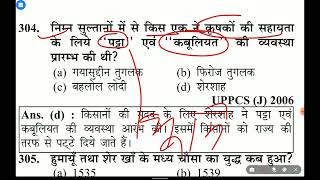 304. निम्न सुल्तानों में से किस एक ने कृषकों की सहायता
के लिये 'पट्टा' एवं 'कबूलियत' की व्यवस्था
प्रारम्भ की थी?
(a) गयासुद्दीन तुगलक (b) फिरोज तुगलक
(c) बहलोल लोदी (d) शेरशाह
UPPCS (J) 2006
Ans. (d) : किसानों की मदद के लिए शेरशाह ने पट्टा एवं
कबूलियत की व्यवस्था आरम्भ की। इसमें किसानों को राज्य की
तरफ से पट्टे दिये जाते हैं।
305. हुमायूँ तथा शेर खाँ के मध्य चौसा का युद्ध कब हुआ?
(a) 1535 (b) 1539